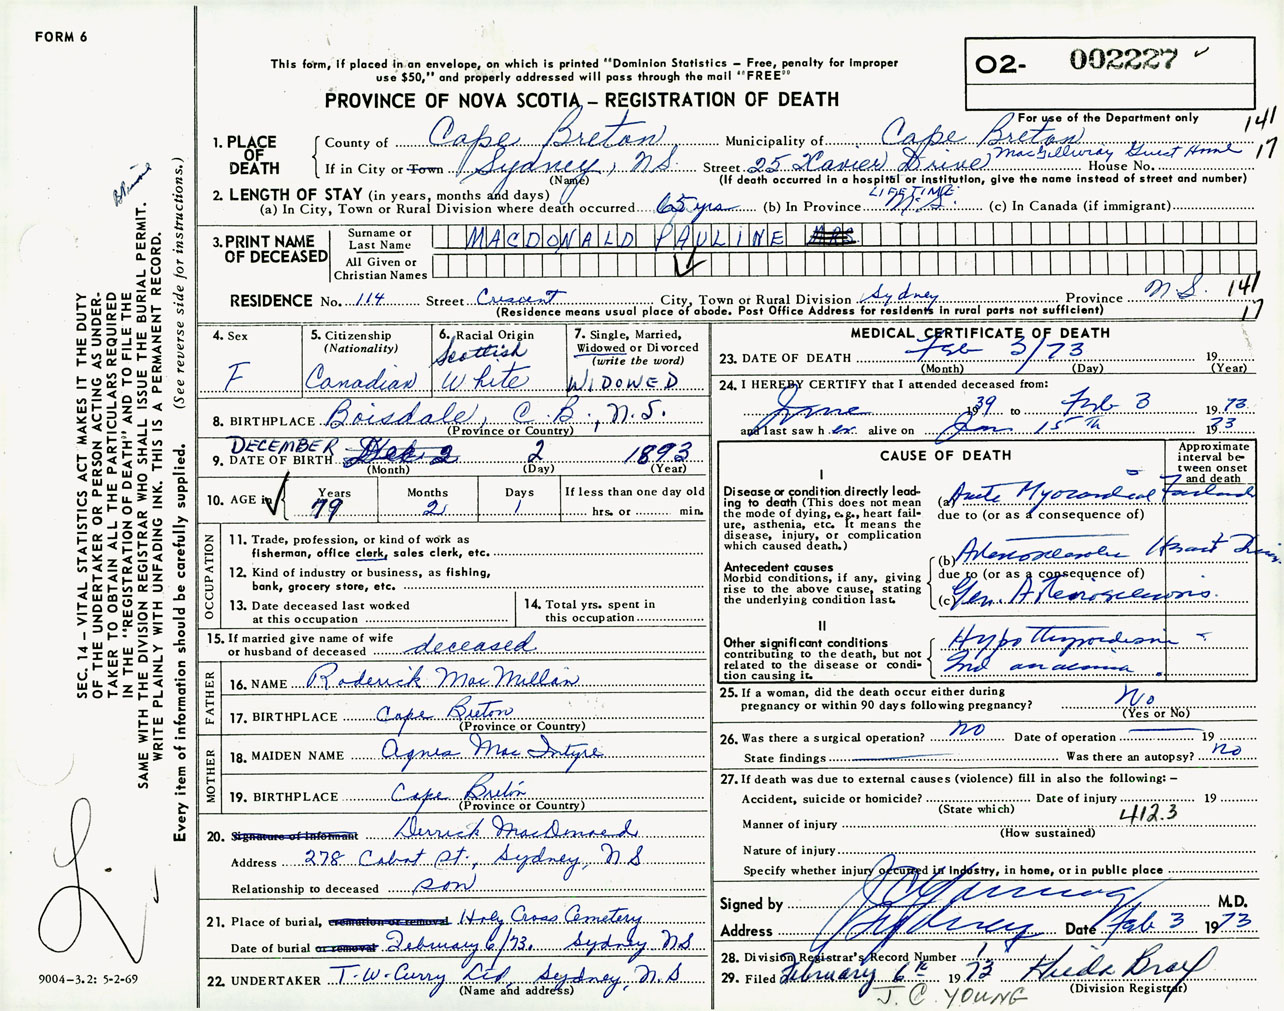 FORM 6
This form, if placed in an envelope, on which is printed "Dominion Statistics – Free, penalty for improper
use $50," and properly addressed will pass through the mail "FREE"
PROVINCE OF NOVA SCOTIA – REGISTRATION OF DEATH
02- 002227
For use of the Department only
141
17
1. PLACE OF DEATH
County of Cape Breton Municipality of Cape Breton
If in City or Town Sydney, N.S. Street 25 Xavier Drive MacGillivray Guest Home House No.
(Name) (If death occurred in a hospital or institution, give the name instead of street and number)
2. LENGTH OF STAY (in years, months and days)
(a) In City, Town or Rural Division where death occurred 65 yrs (b) In Province LIFETIME N.S. (c) In Canada (if immigrant)
3. PRINT NAME OF DECEASED
Surname or Last Name MACDONALD PAULINE MRS
All Given or Christian Names
RESIDENCE No. 114 Street Crescent City, Town or Rural Division Sydney Province N.S. 141
(Residence means usual place of abode. Post Office Address for residents in rural parts not sufficient) 17
4. Sex F
5. Citizenship (Nationality) Canadian
6. Racial Origin Scottish White
7. Single, Married, Widowed or Divorced (write the word) WIDOWED
8. BIRTHPLACE Boisdale, C.B., N.S.
(Province or Country)
9. DATE OF BIRTH DECEMBER Dec 2 2 1893
(Month) (Day) (Year)
10. AGE in Years 79 Months 2 Days 1 If less than one day old hrs. or min.
OCCUPATION
11. Trade, profession, or kind of work as
fisherman, office clerk, sales clerk, etc.
12. Kind of industry or business, as fishing,
bank, grocery store, etc.
13. Date deceased last worked
at this occupation
14. Total yrs. spent in
this occupation
15. If married give name of wife
or husband of deceased deceased
FATHER
16. NAME Roderick MacMillan
17. BIRTHPLACE Cape Breton
(Province or Country)
MOTHER
18. MAIDEN NAME Agnes MacIntyre
19. BIRTHPLACE Cape Breton
(Province or Country)
20. Signature of Informant Derrick MacDonald
Address 278 Cabot St., Sydney, NS
Relationship to deceased son
21. Place of burial, cremation or removal Holy Cross Cemetery
Date of burial or removal February 6/73. Sydney NS
22. UNDERTAKER T.W. Curry Ltd, Sydney, N.S
(Name and address)
MEDICAL CERTIFICATE OF DEATH
23. DATE OF DEATH Feb 3/73 19
(Month) (Day) (Year)
24. I HEREBY CERTIFY that I attended deceased from:
June 1939 to Feb 3 1973
and last saw her alive on Jan 15th 1973
CAUSE OF DEATH
Approximate interval between onset and death
I
Disease or condition directly leading to death (This does not mean the mode of dying, e.g., heart failure, asthenia, etc. It means the disease, injury, or complication which caused death.)
(a) Acute Myocardial
due to (or as a consequence of)
Antecedent causes
Morbid conditions, if any, giving rise to the above cause, stating the underlying condition last.
(b) Arteriosclerotic Heart
due to (or as a consequence of)
(c) Gen. Arteriosclerosis.
II
Other significant conditions
contributing to the death, but not related to the disease or condition causing it.
Hypothyroidism
anaemia
25. If a woman, did the death occur either during
pregnancy or within 90 days following pregnancy? No
(Yes or No)
26. Was there a surgical operation? no Date of operation 19
State findings Was there an autopsy? no
27. If death was due to external causes (violence) fill in also the following: –
Accident, suicide or homicide? Date of injury 19
(State which) 412.3
Manner of injury
(How sustained)
Nature of injury
Specify whether injury occurred in Industry, in home, or in public place
Signed by M.D.
Address Sydney Date Feb 3 1973
28. Division Registrar's Record Number
29. Filed February 6th 1973
(Division Registrar)
J. C. YOUNG
SEC. 14 – VITAL STATISTICS ACT MAKES IT THE DUTY
OF THE UNDERTAKER OR PERSON ACTING AS UNDER-
TAKER TO OBTAIN ALL THE PARTICULARS REQUIRED
IN THE "REGISTRATION OF DEATH" AND TO FILE THE
SAME WITH THE DIVISION REGISTRAR WHO SHALL ISSUE THE BURIAL PERMIT.
WRITE PLAINLY WITH UNFADING INK. THIS IS A PERMANENT RECORD.
Every item of information should be carefully supplied. (See reverse side for instructions.)
9004-3.2: 5-2-69